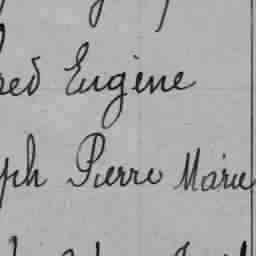 red Eugène
ph Pierre Marie